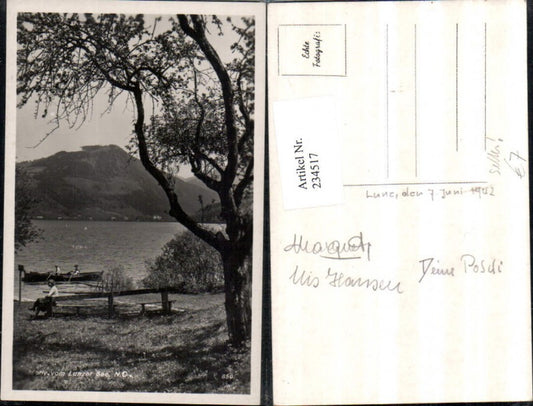 v. vom Lunzer See, N.Ö.
Echte
Fotografie
Artikel Nr.
234517
Lunz, den 7 Juni 1952
selten!
€ 7
Margret
Uis Hansen
Deine Poldi